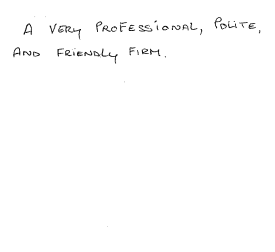 A VERY PROFESSIONAL, POLITE,
AND FRIENDLY FIRM.